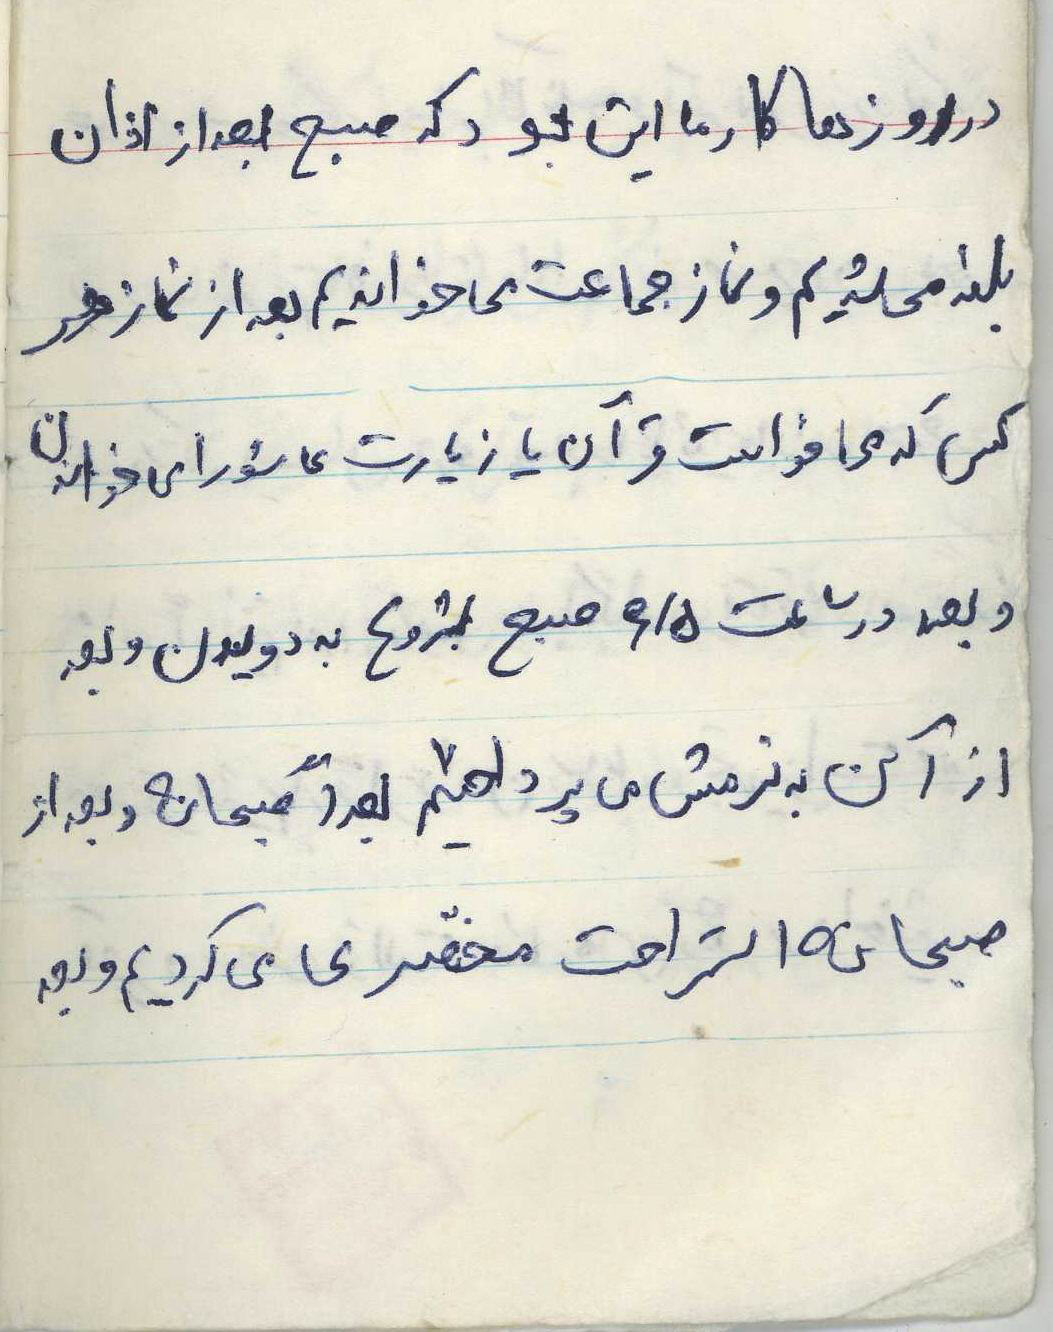 در روزها کار ما این بود که صبح بعد از اذان
بلند می شدیم و نماز جماعت می خواندیم بعد از نماز هر
کس که می خواست قرآن یا زیارت عاشورا می خواندن
و بعد در ساعت صبح شروع به دویدن و بعد
از آن به نرمش می پرداختیم بعداً صبحانه و بعد از
صبحانه استراحت مختصری می کردیم و بعد